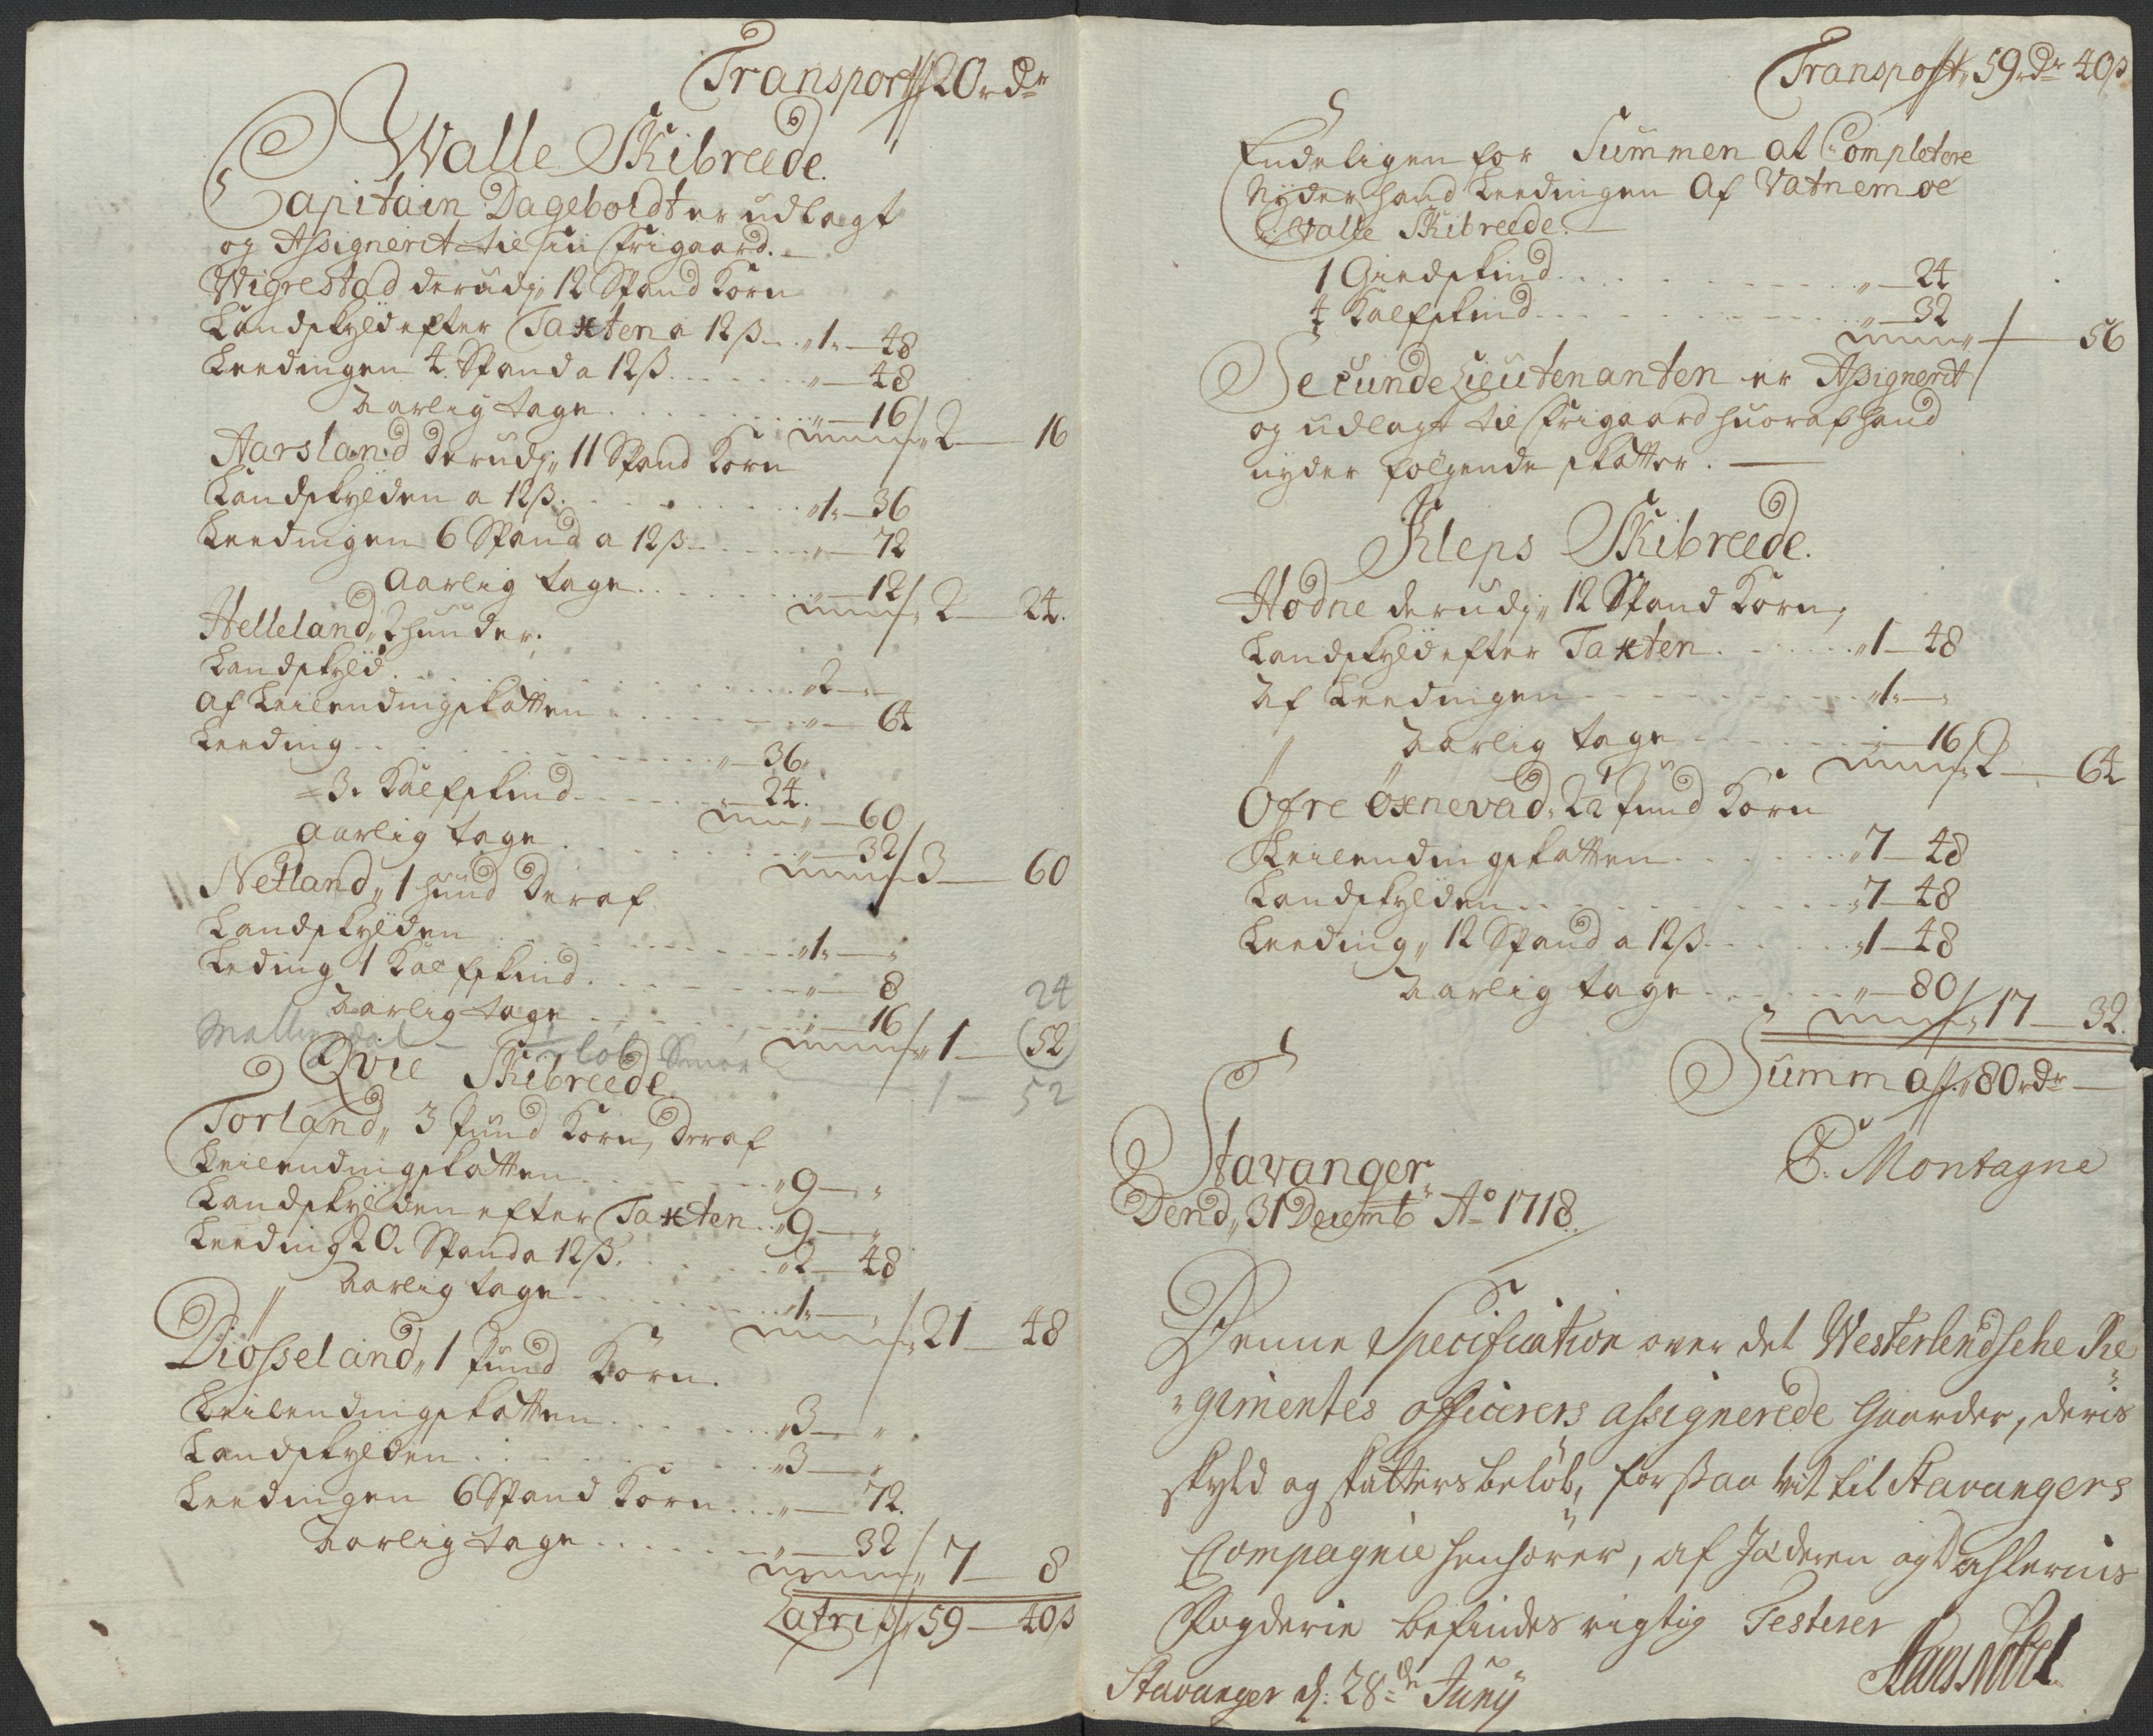 Transport 20 rdr
Walle Skibreede.
Capitain Dageboldt er udlagt
og Assignerit til sin Frigaard.
Wigrestad derudj 12 Spand Korn
Landskyld efter Taxten a 12 ß .. 1 — 48
Leedingen 4 Spand a 12 ß ..... 48
Aarlig tage ..... 16
2 — 16
Aarsland derudj 11 Spand Korn
Landskylden a 12 ß ..... 1 — 36
Leedingen 6 Spand a 12 ß ..... 72
Aarlig tage ..... 12
2 — 24.
Helleland 2 huuder,
Landskyld ..... 2 —
Af Leilendingskatten ..... 64
Leeding ..... 36
3. Kalfskind ..... 24.
60
Aarlig tage ..... 32
3 — 60
Netland, 1 huud deraf
Landskylden ..... 1 —
Leding 1 Kalfskind ..... 8
Aarlig tage ..... 16
1 — 52
24
1 — 52
løb Smør
Qvie Skibreede
Torland, 3 pund Korn, deraf
Leilendingskatten ..... 9 —
Landskylden efter Taxten .. 9 —
Leeding 20. Spand a 12 ß. ..... 2 — 48
Aarlig tage ..... 1 —
21 — 48
Diösseland, 1 pund Korn.
Leilendingskatten ..... 3 —
Landskylden ..... 3 —
Leedingen 6 Spand Korn ... 72.
Aarlig tage ..... 32
7 — 8
Latris 59 — 40 ß
Transport 59 rdr 40 ß
Endeligen for Summen at Completere
Nyder hand Leedingen Af Vatnemoe
i Walle Skibreede.
1 Giedskind ..... 24
4 Kalfskind ..... 32
56
Secunde Lieutenanten er Assignerit
og udlagt til Frigaard huoraf hand
nyder følgende skatter.
Kleps Skibreede.
Hodne derudj 12 Spand Korn,
Landskyld efter Taxten ..... 1 — 48
Af Leedningen ..... 1 —
Aarlig tage ..... 16
2 — 64
Öfre Öxnevad, 2½ pund Korn
Leilendingskatten ..... 7 — 48
Landskylden ..... 7 — 48
Leeding, 12 Spand a 12 ß ..... 1 — 48
Aarlig tage ..... 80
17 — 32.
Summa 80 rdr —
Stavanger,
Dend 31 Decemb Ao 1718.
C. Montagne
Denne Specification over det Westerlendsche Re
gimentes officerers assignerede Gaarder, deris
skyld og skatters beløb, forsaavit til Stavangers
Compagnie henhører, af Jæderen og Dahlernis
Fogderie befindes rigtig Testerer
Stavanger d: 28de Junij
Hans Nobel